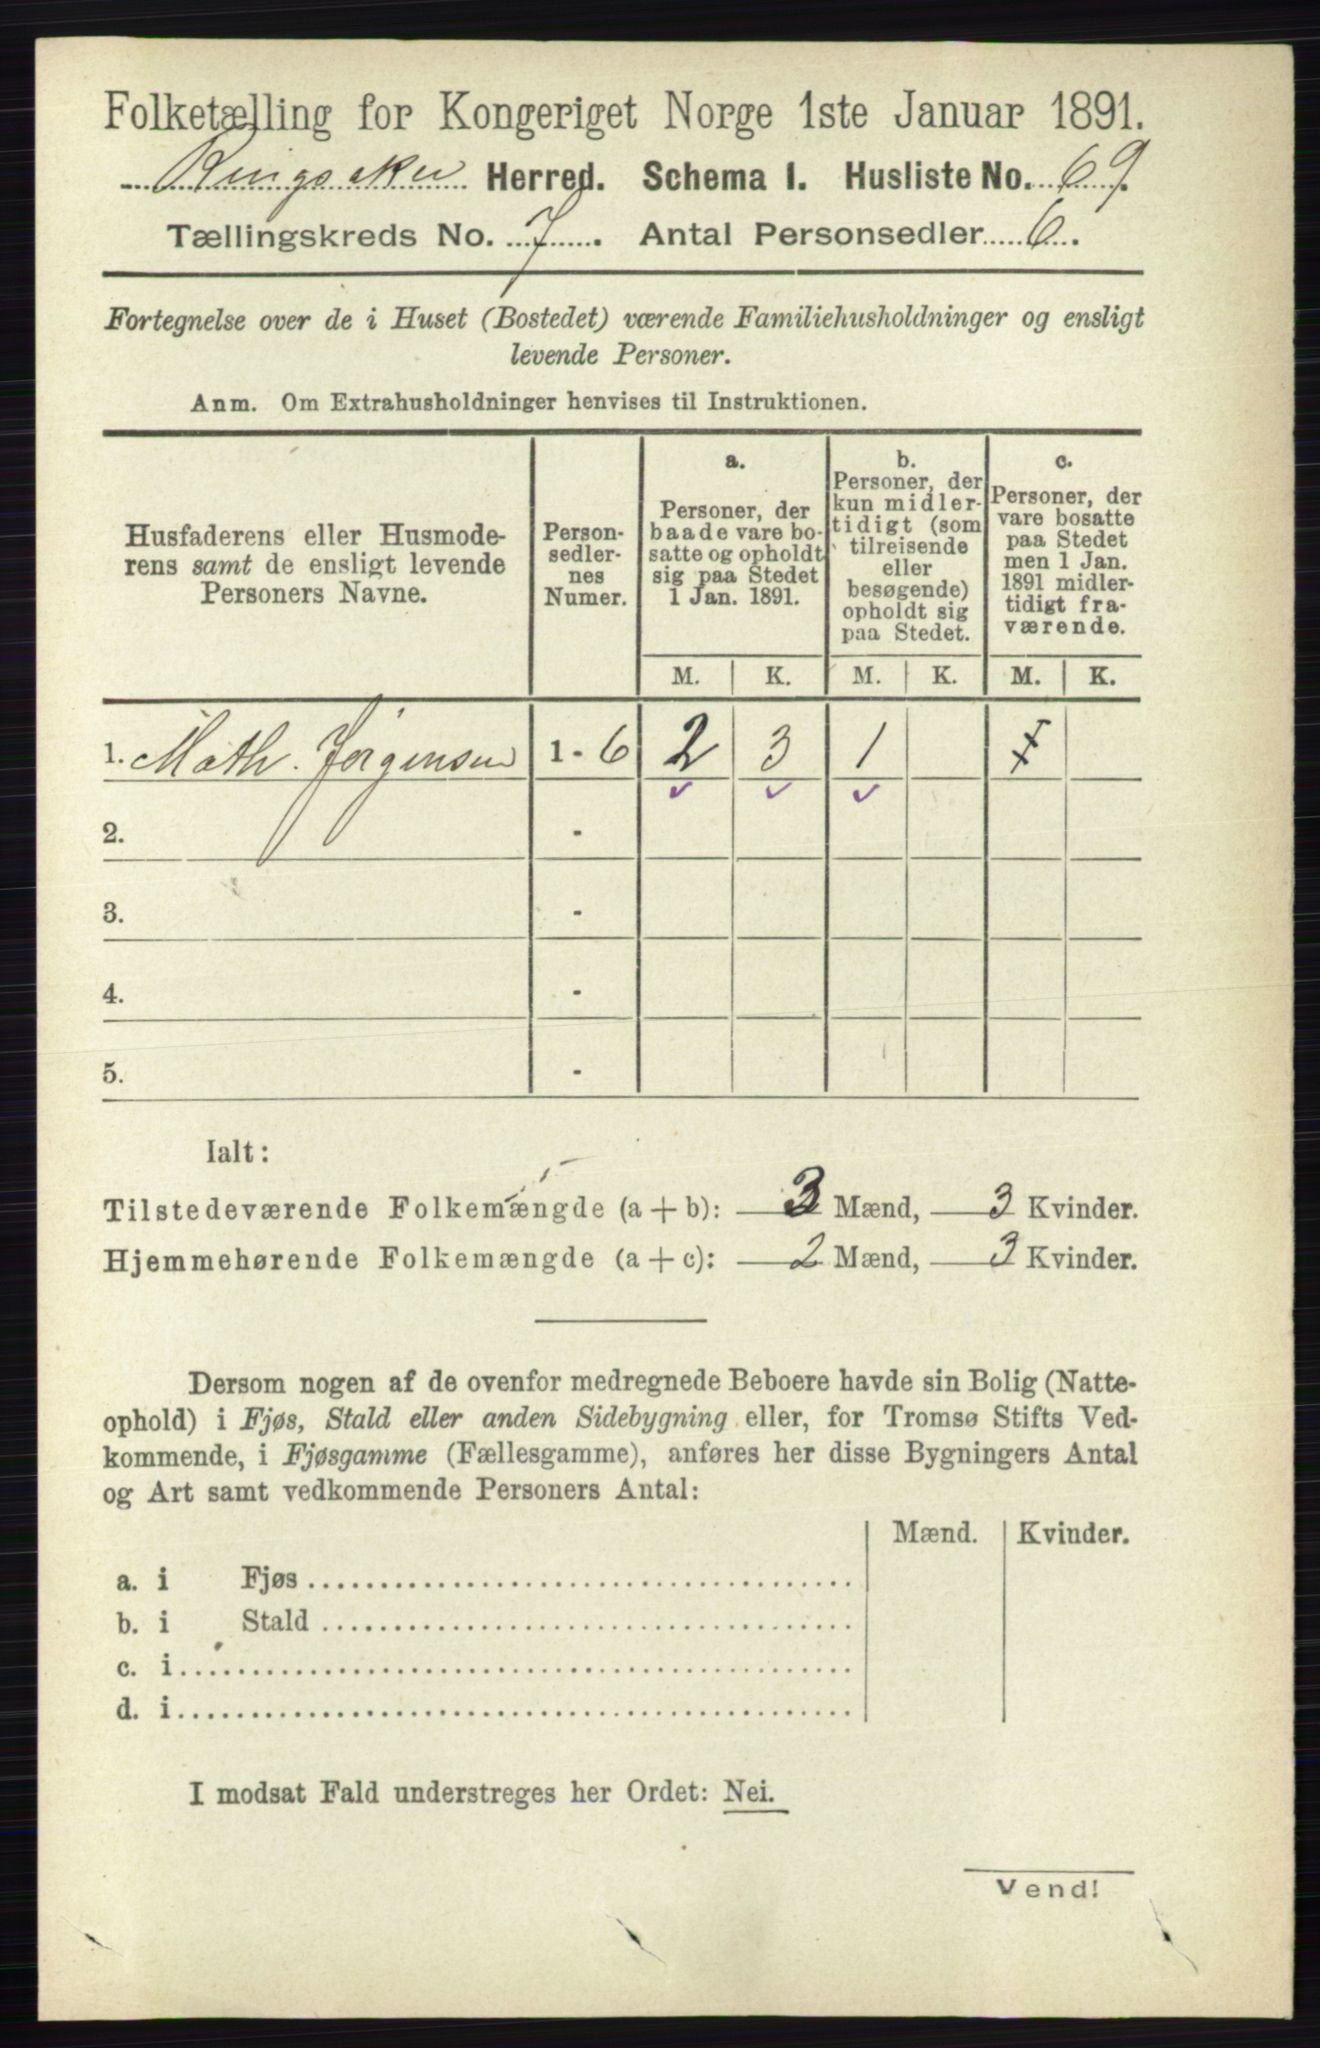 Folketælling for Kongeriget Norge 1ste Januar 1891.
Ringsaker Herred. Schema I. Husliste No. 69.
Tællingskreds No. 7. Antal Personsedler 6.
Fortegnelse over de i Huset (Bostedet) værende Familiehusholdninger og ensligt
levende Personer.
Anm. Om Extrahusholdninger henvises til Instruktionen.
Husfaderens eller Husmode-
rens samt de ensligt levende
Personers Navne.
Person-
sedler-
nes
Numer.
a.
Personer, der
baade vare bo-
satte og opholdt
sig paa Stedet
1 Jan. 1891.
b.
Personer, der
kun midler-
tidigt (som
tilreisende
eller
besøgende)
opholdt sig
paa Stedet.
c.
Personer, der
vare bosatte
paa Stedet
men 1 Jan.
1891 midler-
tidigt fra-
værende.
M. K. M. K. M. K.
1. Math. Jørgensen 1 - 6 2 3 1 1
2. -
3. -
4. -
5. -
Ialt:
Tilstedeværende Folkemængde (a + b): 3 Mænd, 3 Kvinder.
Hjemmehørende Folkemængde (a + c): 2 Mænd, 3 Kvinder.
Dersom nogen af de ovenfor medregnede Beboere havde sin Bolig (Natte-
ophold) i Fjøs, Stald eller anden Sidebygning eller, for Tromsø Stifts Ved-
kommende, i Fjøsgamme (Fællesgamme), anføres her disse Bygningers Antal
og Art samt vedkommende Personers Antal:
Mænd. Kvinder.
a. i Fjøs
b. i Stald
c. i
d. i
I modsat Fald understreges her Ordet: Nei.
Vend!